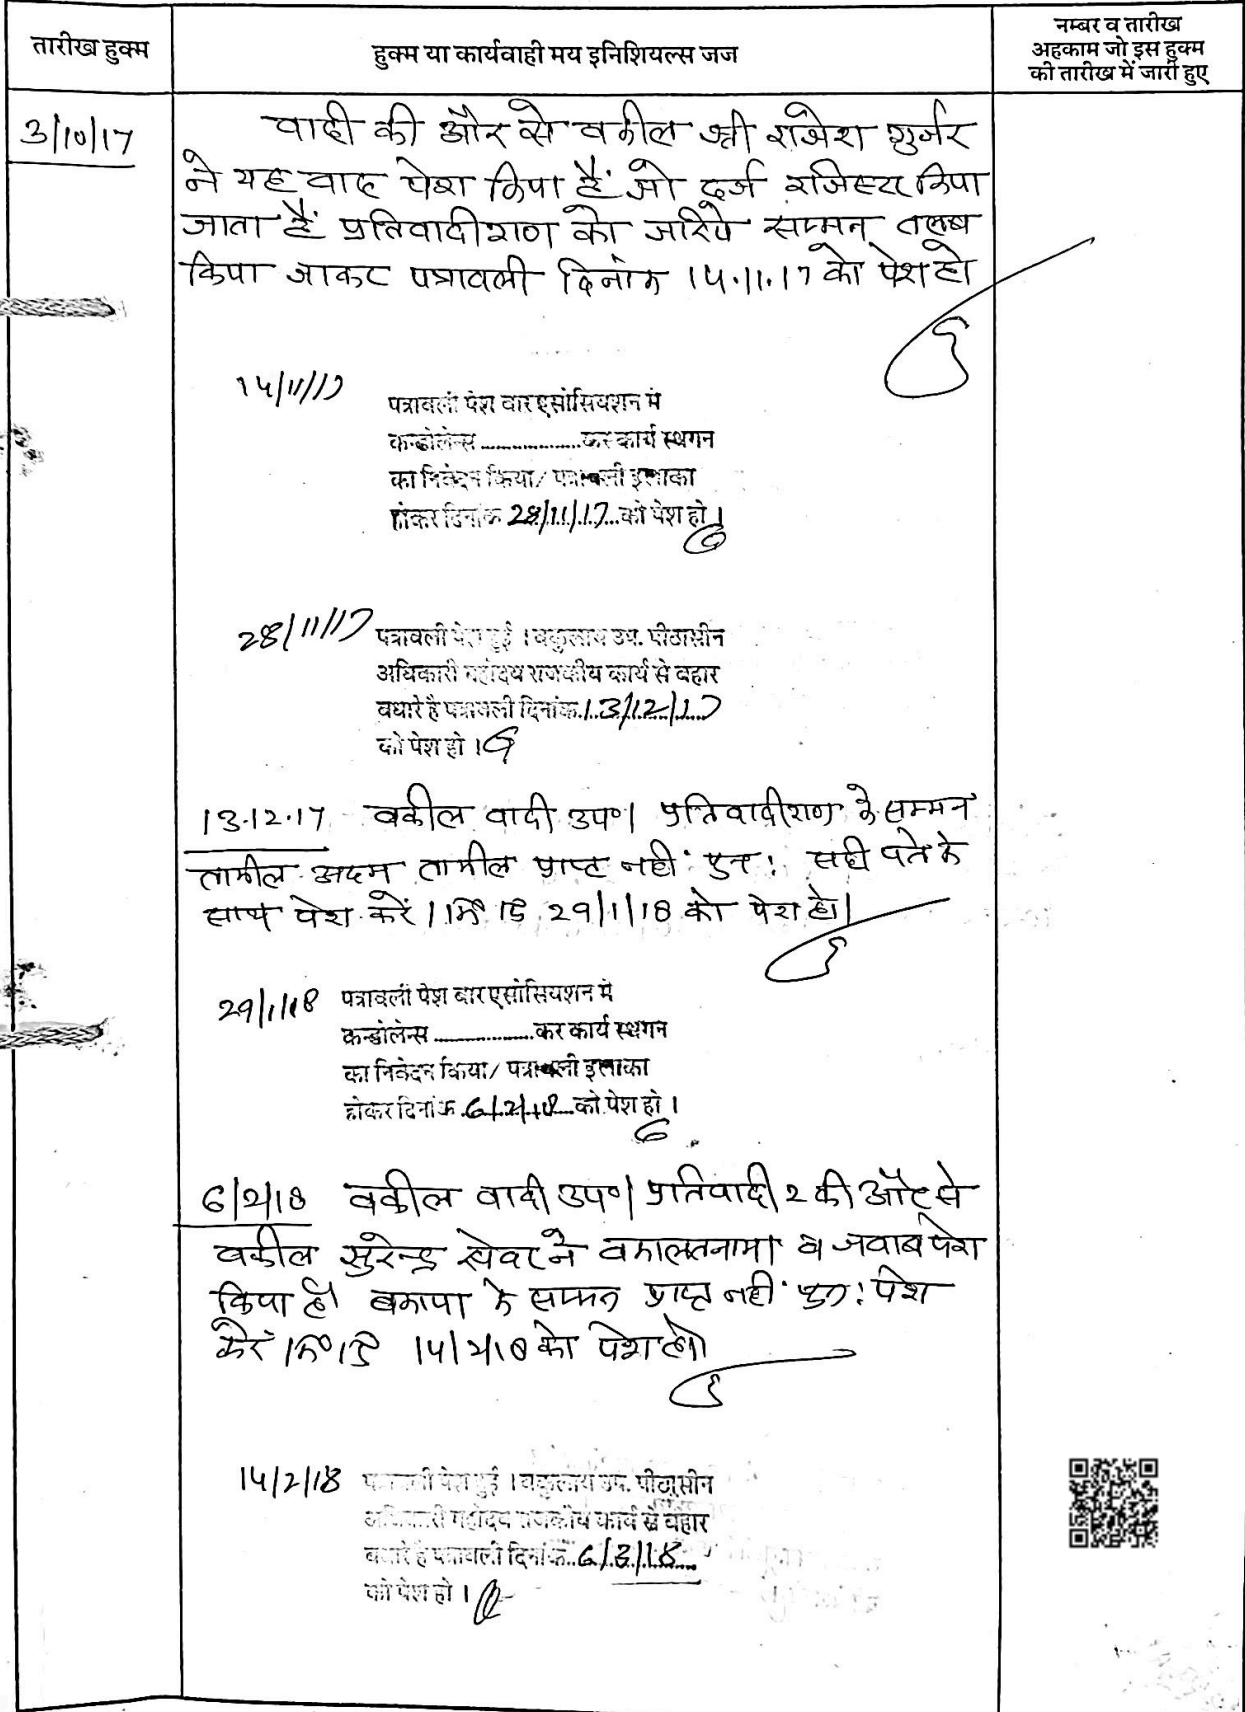 तारीख हुक्म
हुक्म या कार्यवाही मय इनिशियल्स जज
नम्बर व तारीख
अहकाम जो इस हुक्म
की तारीख में जारी हुए
3/10/17
वादी की और से वकील श्री राजेश गुर्जर
ने यह वाद पेश किया है जो दर्ज रजिस्टर किया
जाता है प्रतिवादीगण को जरिये सम्मन तलब
किया जाकर पत्रावली दिनांक 14.11.17 को पेश हो
14/11/17
पत्रावली पेश बार एसोसियशन मे
कन्डोलेन्स ..................कर कार्य स्थगन
का निवेदन किया/ पत्रावली इलाका
होकर दिनांक 28/11/17 को पेश हो।
28/11/17
पत्रावली पेश हुई । वकुलाय उप. पीठासीन
अधिकारी महोदय राजकीय कार्य से बहार
पधारे है पत्रावली दिनांक 13/12/17
को पेश हो ।
13.12.17 वकील वादी उप०। प्रतिवादीगण के सम्मन
तामील अदम तामील प्राप्त नहीं पुन: सही पते के
साथ पेश करें। 29/1/18 को पेश हो।
29/1/18
पत्रावली पेश बार एसोसियशन मे
कन्डोलेन्स ..................कर कार्य स्थगन
का निवेदन किया/ पत्रावली इलाका
होकर दिनांक 6/2/18 को पेश हो ।
6/2/18 वकील वादी उप०। प्रतिवादी 2 की और से
वकील सुरेन्द्र ने वकालतनामा व जवाब पेश
किया है। बकाया के सम्मन प्राप्त नहीं पुन: पेश
करें। 14/2/18 को पेश हो।
14/2/18
पत्रावली पेश हुई । वकुलाय उप. पीठासीन
अधिकारी महोदय राजकीय कार्य से बहार
पधारे है पत्रावली दिनांक 6/3/18
को पेश हो ।